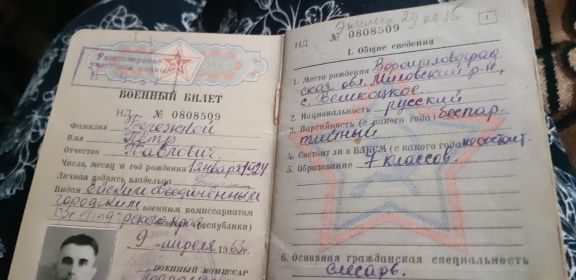 Удостоверение
ВОЕННЫЙ БИЛЕТ
НД № 0808509
Фамилия
Имя Пётр
Отчество Павлович
Число, месяц и год рождения 1 января 1924
Личная подпись владельца
Выдан Ейским объединенным
городским военным комиссариатом
Краснодарского края
(республики)
9 апреля 1963 г.
ВОЕННЫЙ КОМИССАР
29 кв 15
НД № 0808509
1
I. Общие сведения
1. Место рождения Ворошиловград
ская обл. Миловский р-н,
с.
2. Национальность русский
3. Партийность (с какого года) беспар
тийный
4. Состоит ли в ВЛКСМ (с какого года) не состоит.
5. Образование 7 классов.
6. Основная гражданская специальность
слесарь.